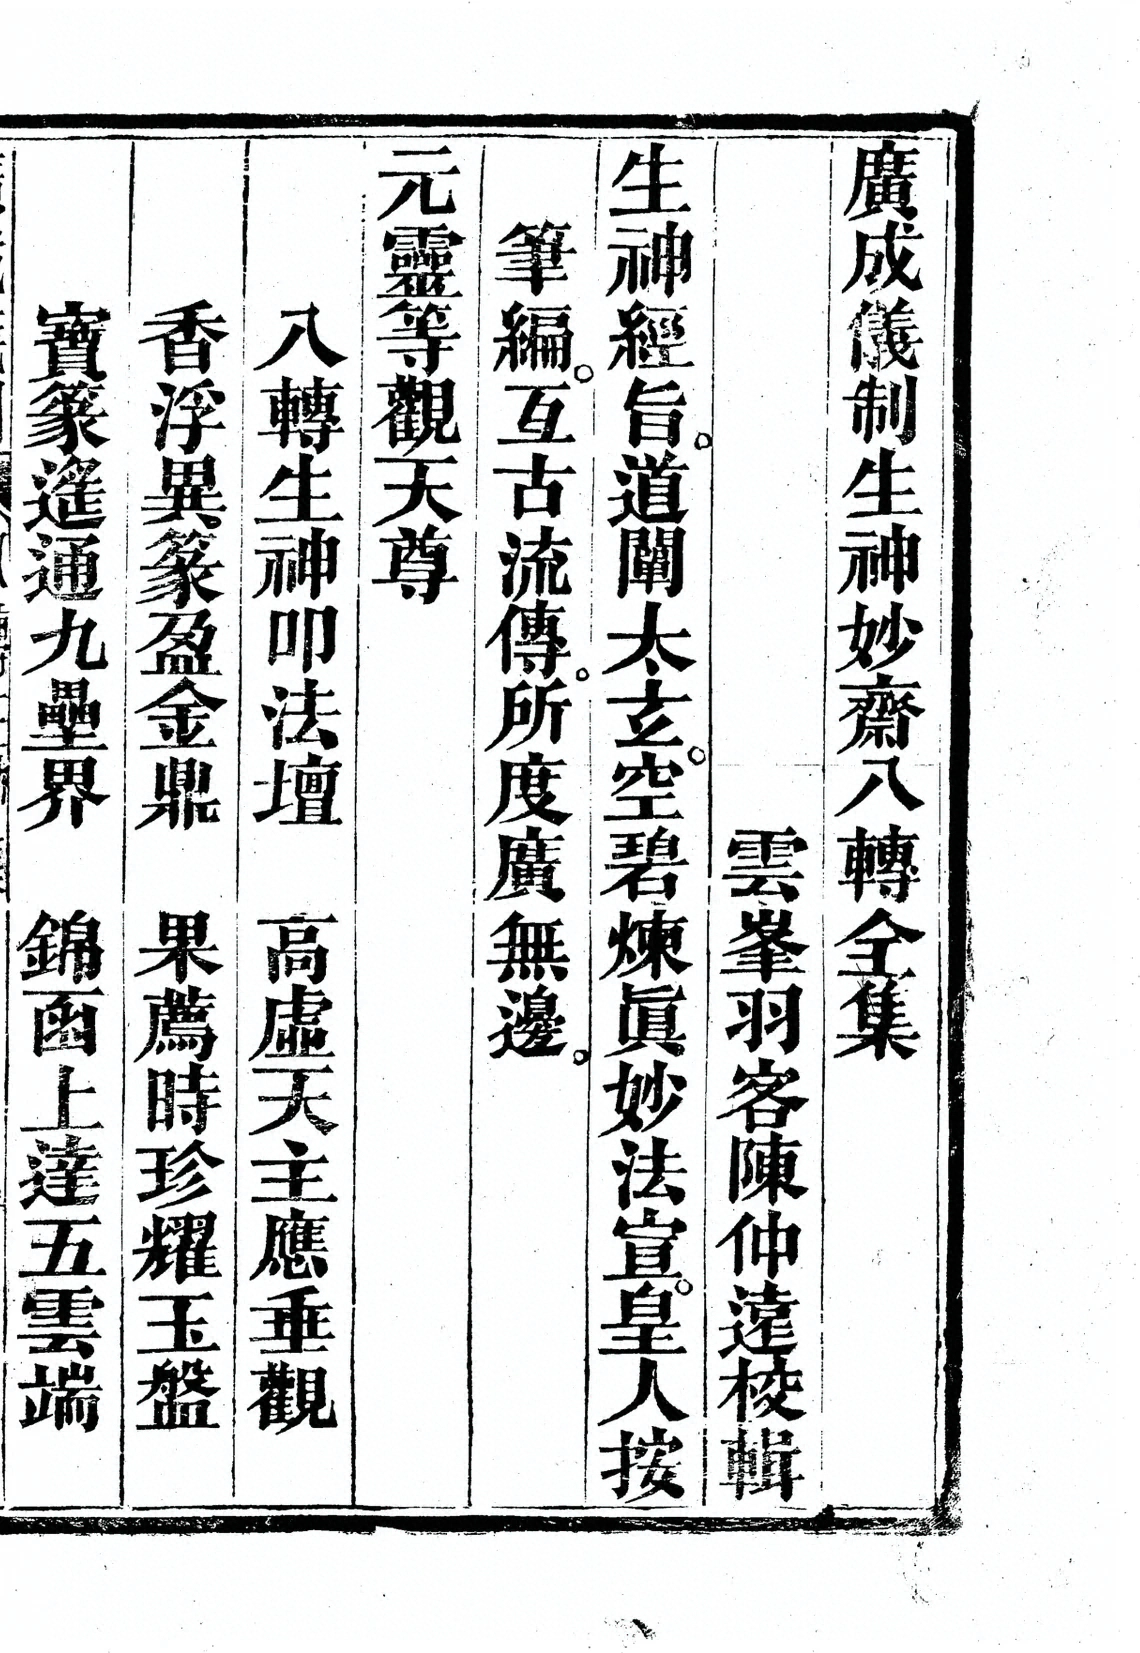 廣成儀制生神妙齋八轉全集
雲峯羽客陳仲遠校輯
生神經旨。道闡太玄。空碧煉眞妙法宣。皇人按
筆編。互古流傳。所度廣無邊。
元靈等觀天尊
八轉生神叩法壇　高虛天主應垂觀
香浮異篆盈金鼎　果薦時珍耀玉盤
寶篆遙通九壘界　錦函上達五雲端